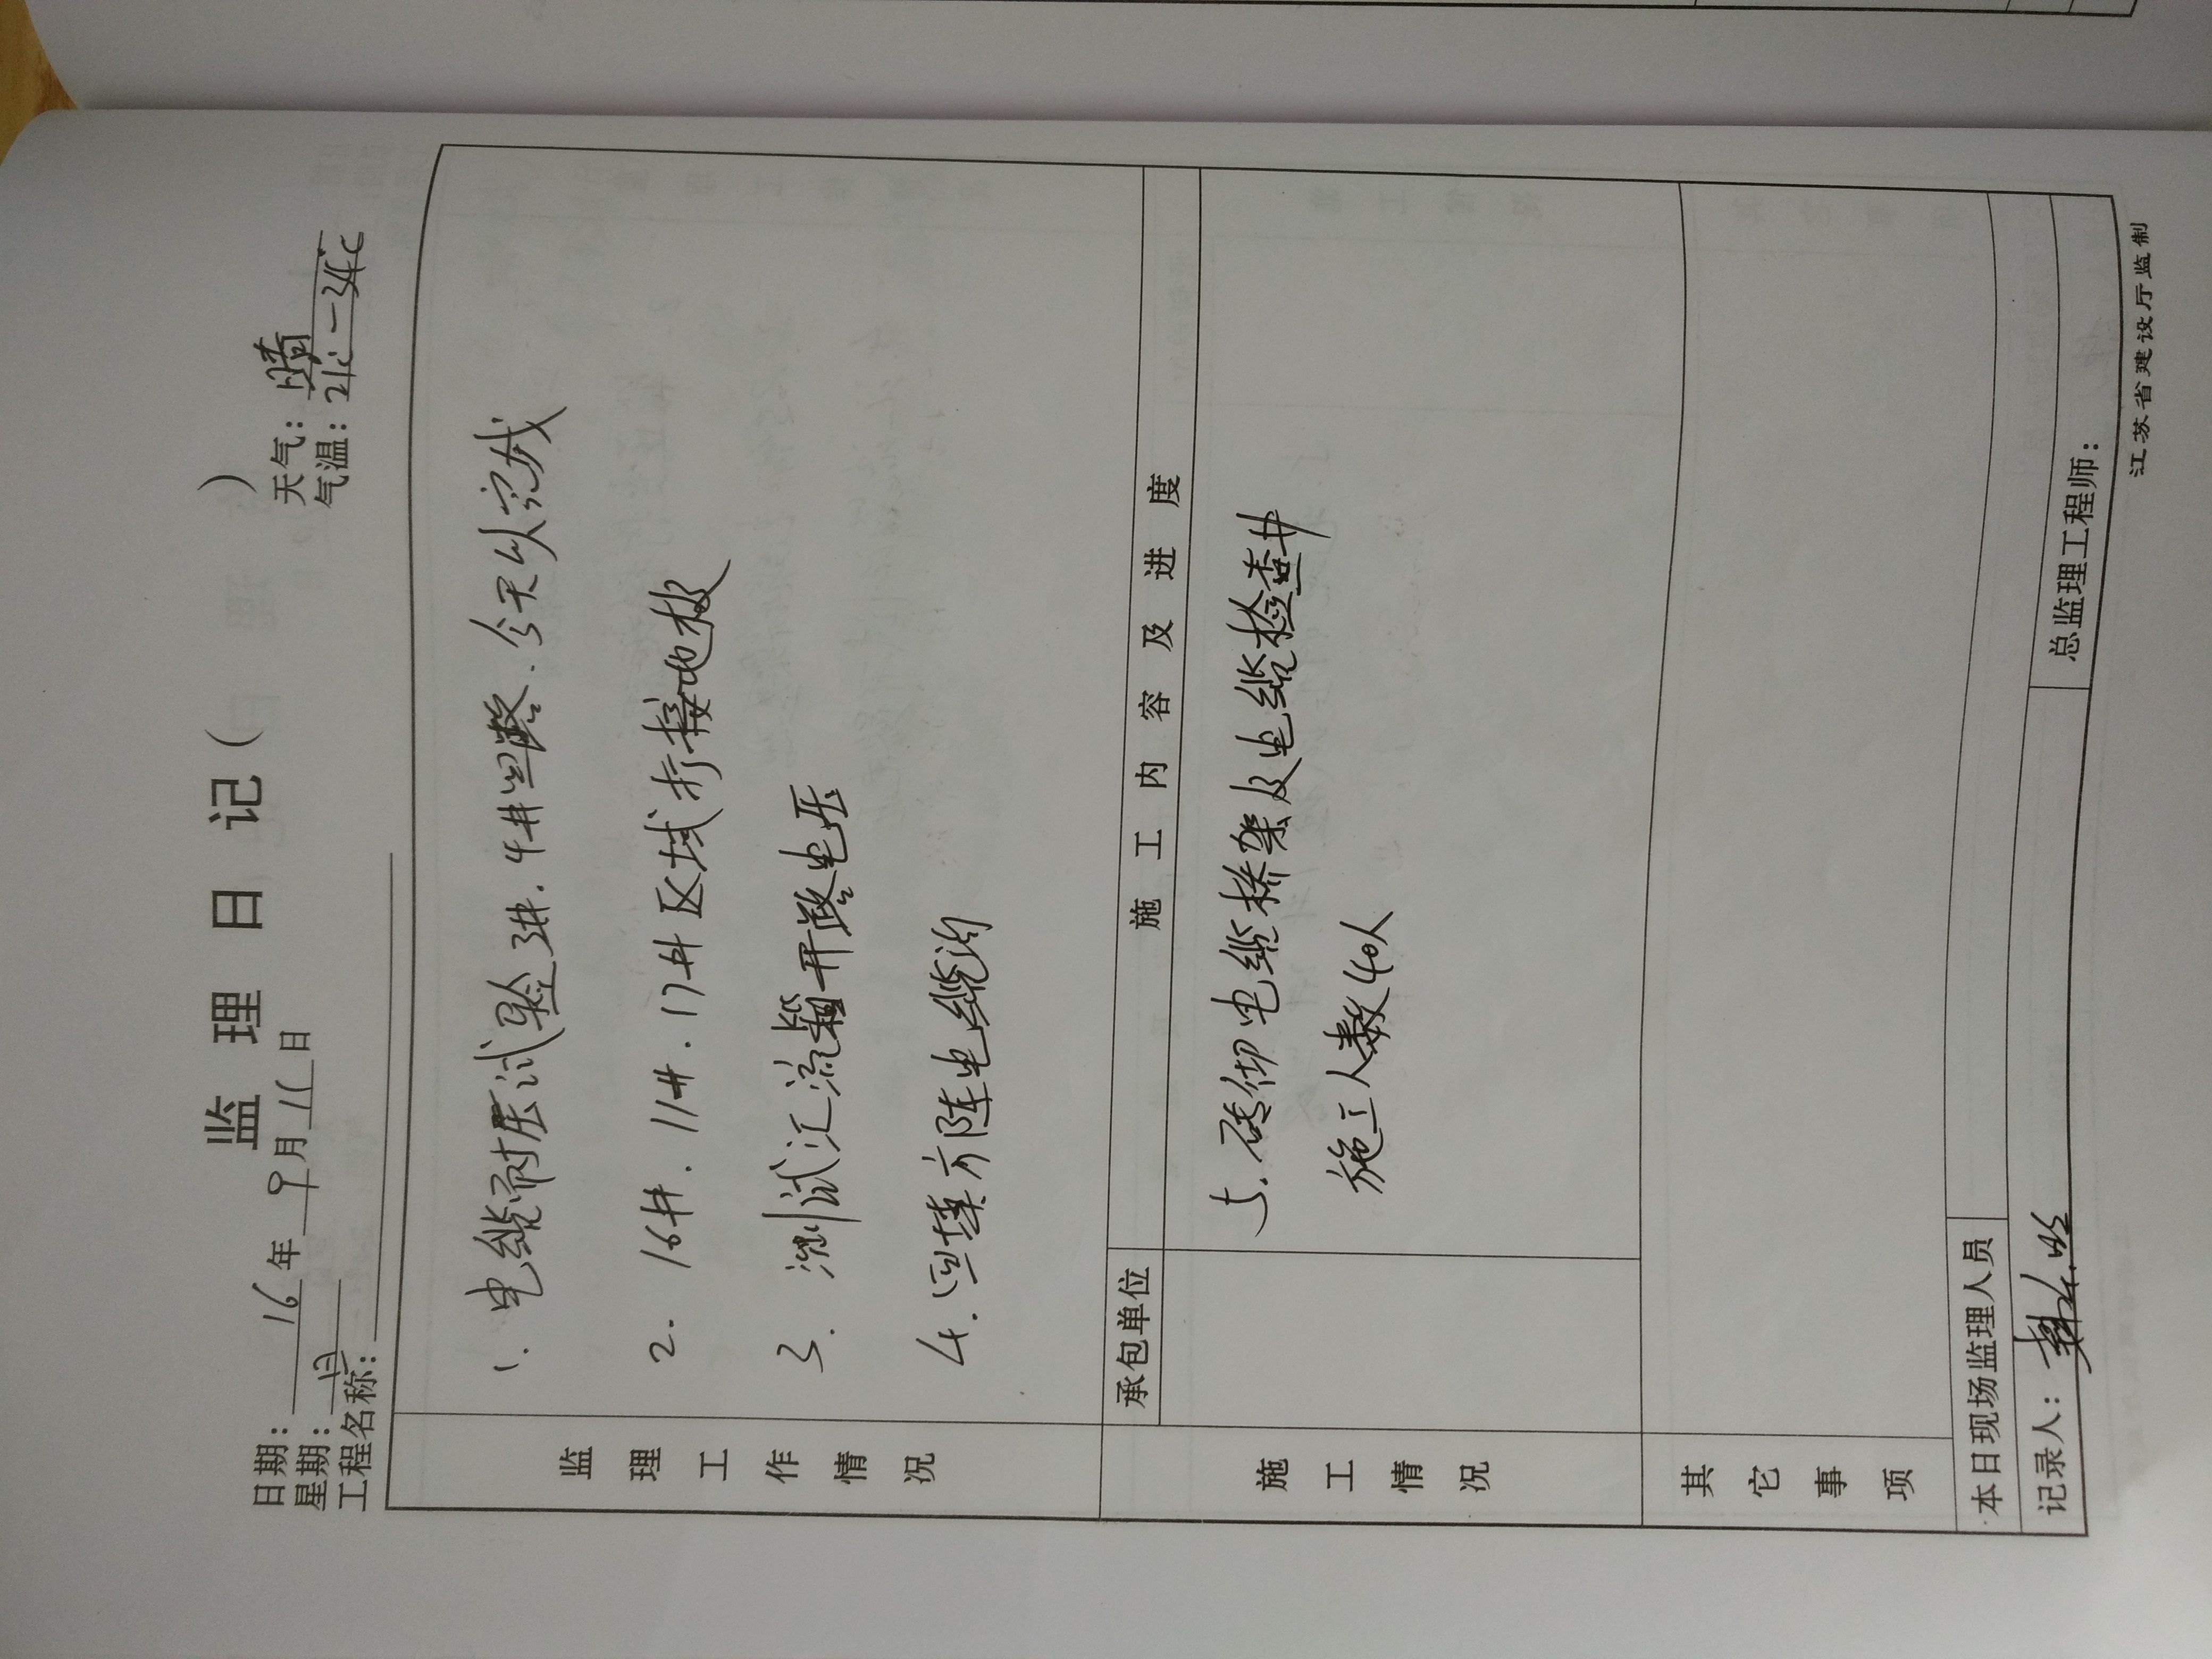 监理日记( )
日期: 16 年 9 月 11 日 天气: 晴
星期: 日 气温: 21℃-34℃
工程名称:
监理工作情况
1. 电缆耐压试验3#.4#回路.今天以完成
2. 16#.11#.17#区域打接地极
3. 测试汇流箱开路电压
4. 回填方阵电缆沟
施工情况
承包单位 施工内容及进度
5. 砖砌电缆桥架及电缆检查井
施工人数40人
其它事项
本日现场监理人员
记录人: 总监理工程师:
江苏省建设厅监制